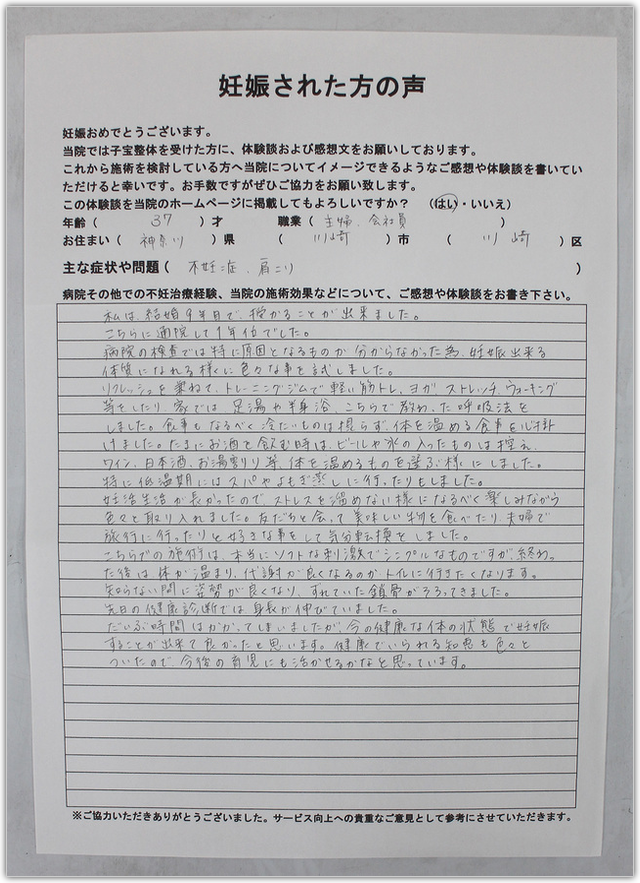 妊娠された方の声
妊娠おめでとうございます。
当院では子宝整体を受けた方に、体験談および感想文をお願いしております。
これから施術を検討している方へ当院についてイメージできるようなご感想や体験談を書いてい
ただけると幸いです。お手数ですがぜひご協力をお願い致します。
この体験談を当院のホームページに掲載してもよろしいですか？　（はい・いいえ）
年齢（　37　）才　職業（　主婦、会社員　）
お住まい（　神奈川　）県　（　川崎　）市　（　川崎　）区
主な症状や問題（　不妊症、肩こり　）
病院その他での不妊治療経験、当院の施術効果などについて、ご感想や体験談をお書き下さい。
私は、結婚9年目で、授かることが出来ました。
こちらに通院して1年位でした。
病院の検査では特に原因となるものが分からなかった為、妊娠出来る
体質になれる様に色々な事を試しました。
リフレッシュを兼ねて、トレーニングジムで軽い筋トレ、ヨガ、ストレッチ、ウォーキング
等をしたり、家では、足湯や半身浴、こちらで教わった呼吸法を
しました。食事もなるべく冷たいものは摂らず、体を温める食事を心掛
けました。たまにお酒を飲む時は、ビールや氷の入ったものは控え、
ワイン、日本酒、お湯割り等、体を温めるものを選ぶ様にしました。
特に低温期にはスパやよもぎ蒸しに行ったりもしました。
妊活生活が長かったので、ストレスを溜めない様になるべく楽しみながら
色々と取り入れました。友だちと会って美味しい物を食べたり、夫婦で
旅行に行ったりと好きな事をして気分転換をしました。
こちらでの施術は、本当にソフトな刺激でシンプルなものですが、終わっ
た後は体が温まり、代謝が良くなるのかトイレに行きたくなります。
知らない間に姿勢が良くなり、ずれていた鎖骨がそろってきました。
先日の健康診断では身長が伸びていました。
だいぶ時間はかかってしまいましたが、今の健康な体の状態で妊娠
することが出来て良かったと思います。健康でいられる知恵も色々と
ついたので、今後の育児にも活かせるかなと思っています。
※ご協力いただきありがとうございました。サービス向上への貴重なご意見として参考にさせていただきます。